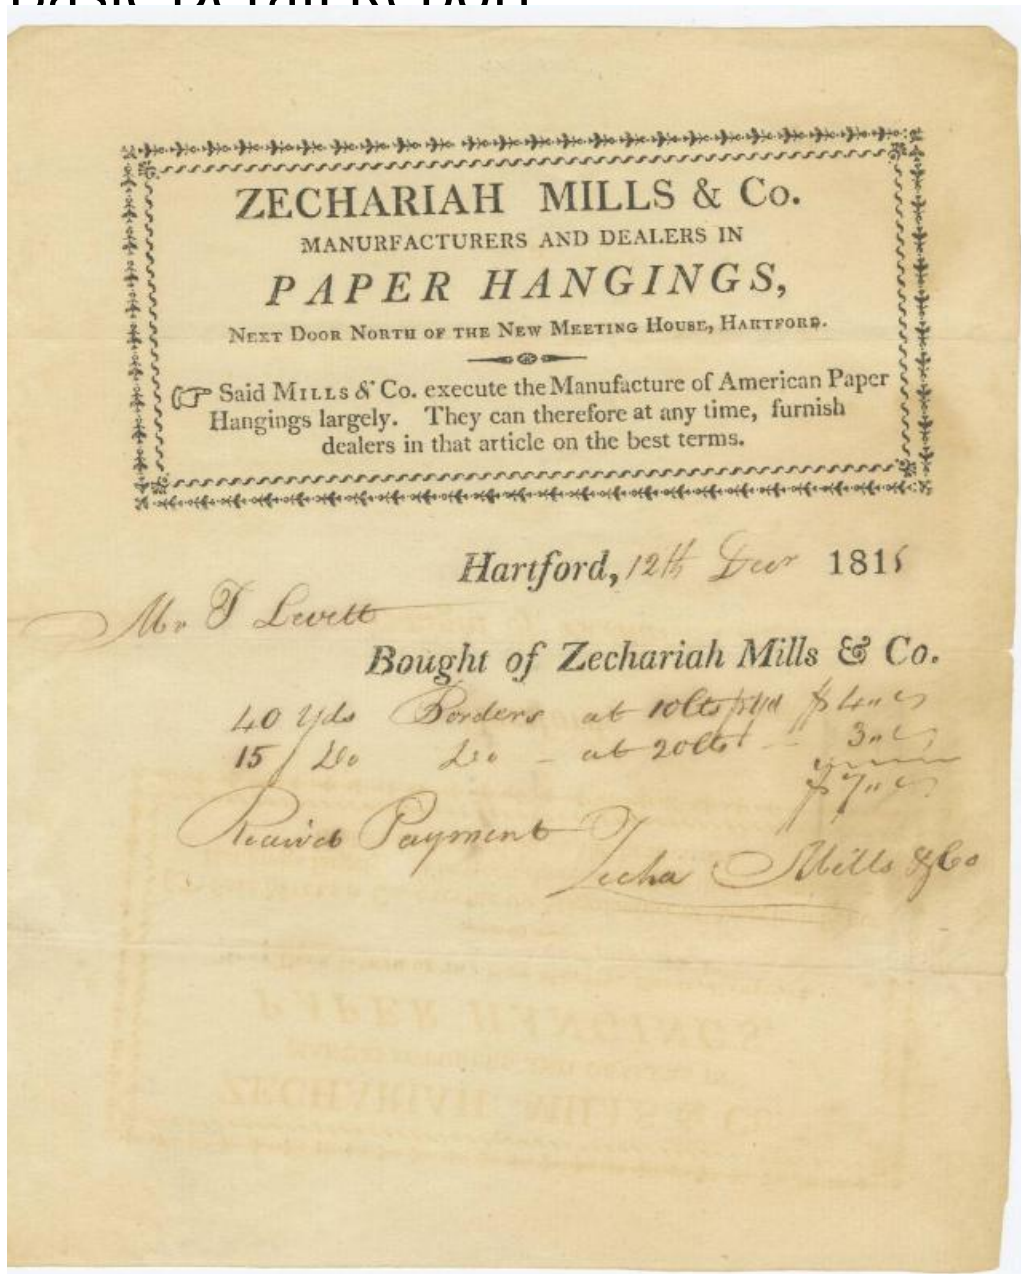 Basic Detail Report
ZECHARIAH MILLS & Co.
MANURFACTURERS AND DEALERS IN
PAPER HANGINGS,
NEXT DOOR NORTH OF THE NEW MEETING HOUSE, HARTFORD.
☞ Said MILLS & Co. execute the Manufacture of American Paper
Hangings largely. They can therefore at any time, furnish
dealers in that article on the best terms.
Hartford, 12th Decr 1815
Mr. T Levett
Bought of Zechariah Mills & Co.
40 Yds Borders at 10cts pr yd $4"
15 / Do Do - at 20cts - 3"
$7"
Receivd Payment
Zecha Mills & Co